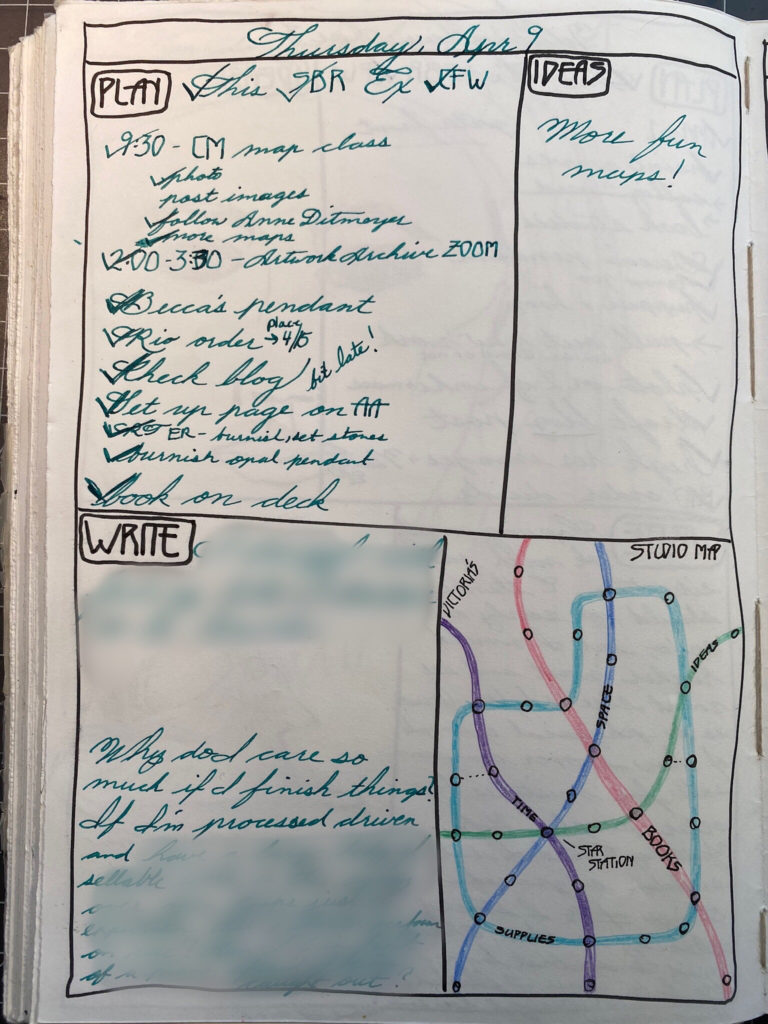 Thursday, Apr 9
PLAY
✓this ✓SBR Ex ✓CFW
✓9:30 - CM map class
✓photo
post images
✓follow Anne Ditmeyer
✓more maps
✓2:00-3:30 - Artwork Archive ZOOM
✓Becca's pendant
✓Rio order place → 4/15
✓Check blog / bit late!
✓Set up page on AA
ER - burnish, set stones
✓burnish opal pendant
✓book on deck
IDEAS
More fun
maps!
WRITE
Why do I care so
much if I finish things?
If I'm processed driven
and
sellable
STUDIO MAP
VICTORIA'S
SPACE
IDEAS
TIME
BOOKS
STAR
STATION
SUPPLIES